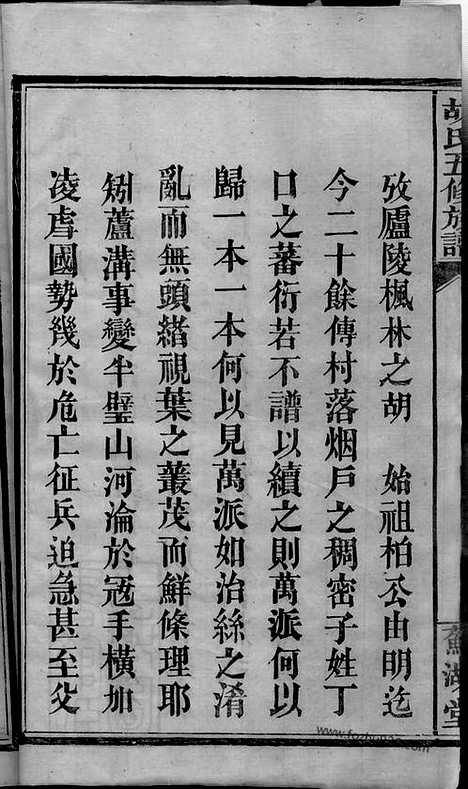 胡氏五修族譜
蘇湖堂
攷廬陵楓林之胡　始祖柏公由明迄
今二十餘傳村落烟戶之稠密子姓丁
口之蕃衍若不譜以續之則萬派何以
歸一本一本何以見萬派如治絲之淆
亂而無頭緖視葉之叢茂而鮮條理耶
矧蘆溝事變半壁山河淪於冦手橫加
凌虐國勢幾於危亡征兵迫急甚至父